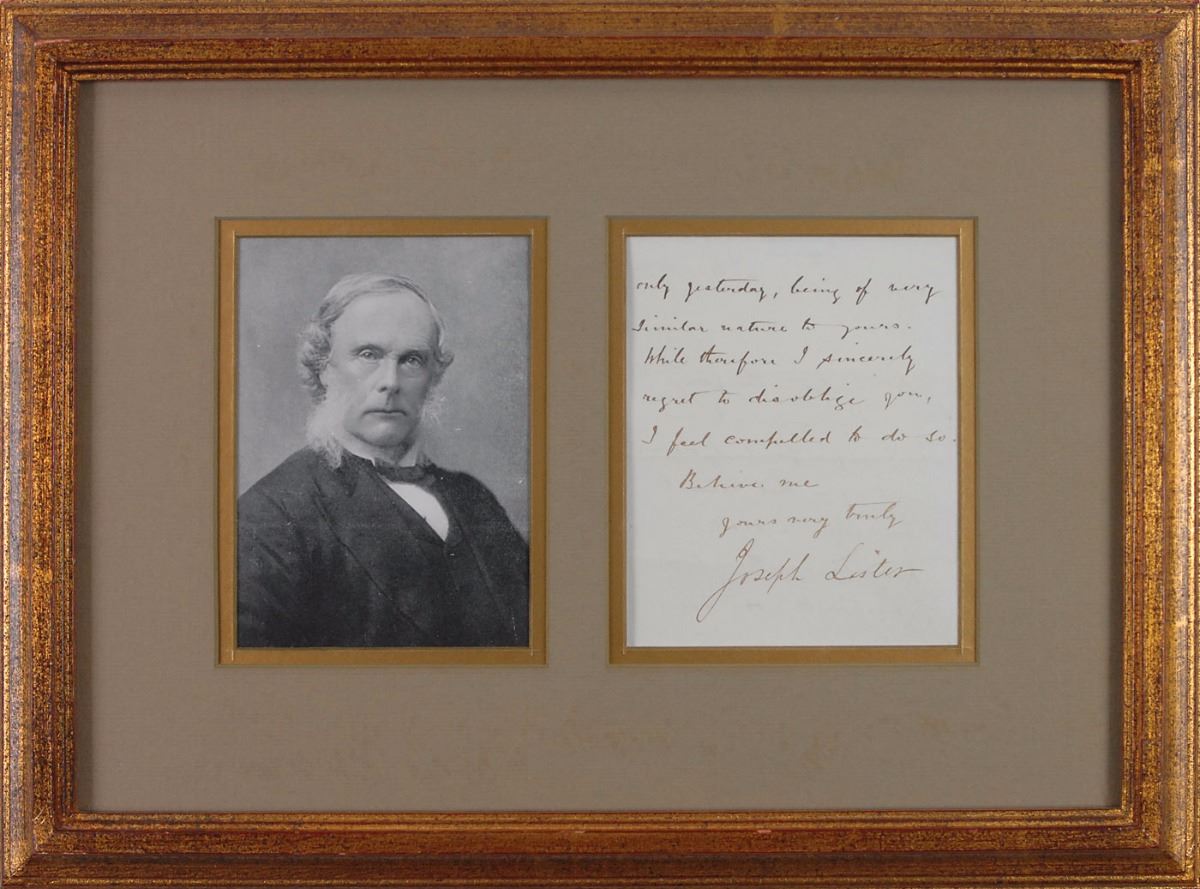 only yesterday, being of very
similar nature to yours.
While therefore I sincerely
regret to disoblige you,
I feel compelled to do so.
Believe me
yours very truly
Joseph Lister